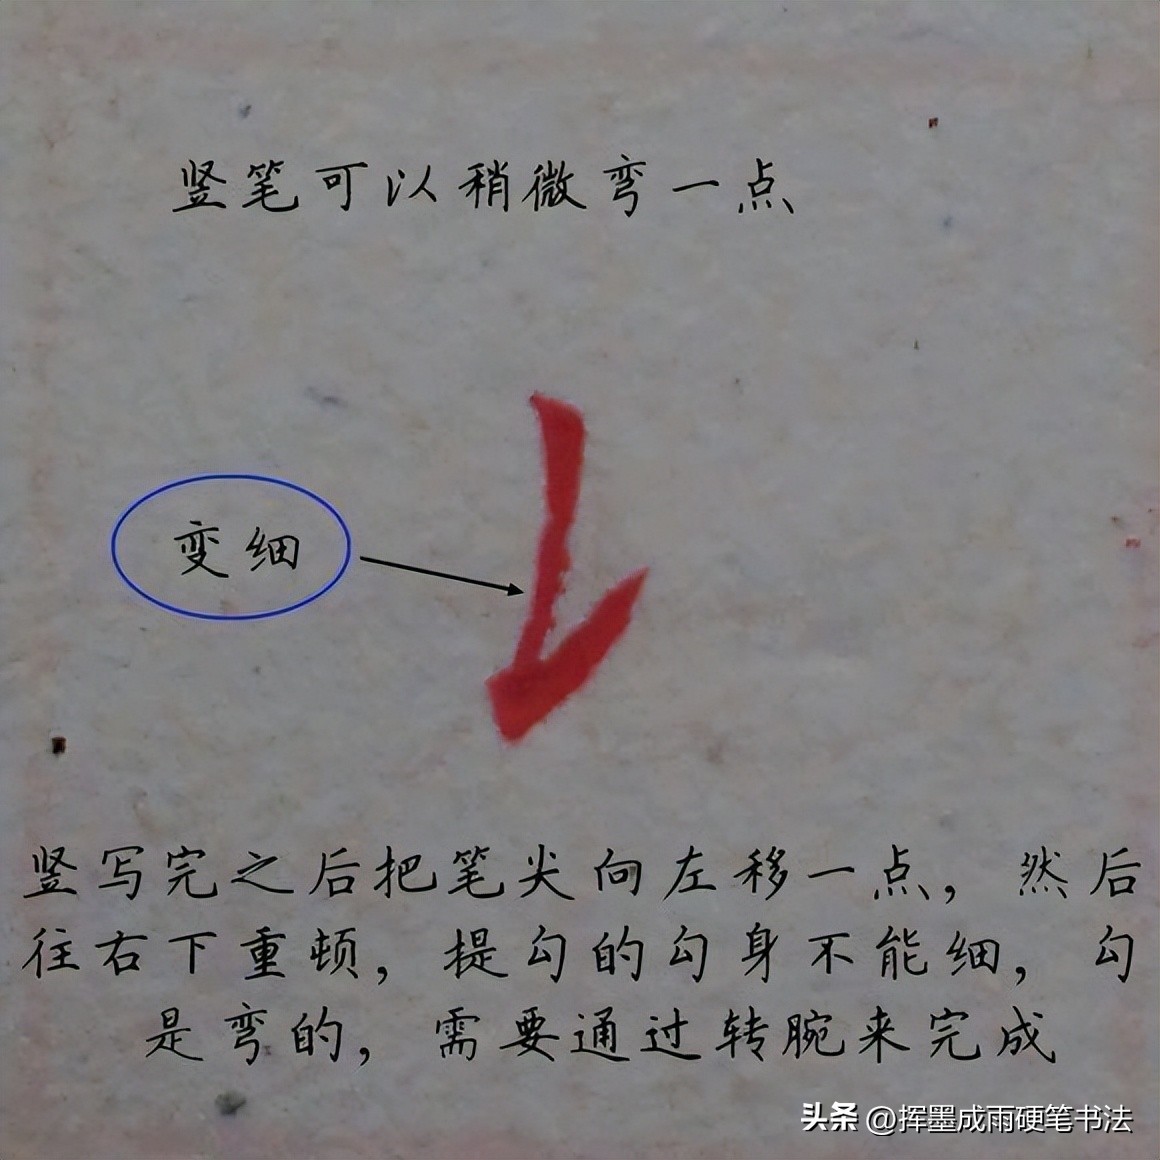 竖笔可以稍微弯一点
变细
竖写完之后把笔尖向左移一点，然后
往右下重顿，提勾的勾身不能细，勾
是弯的，需要通过转腕来完成
头条 @挥墨成雨硬笔书法